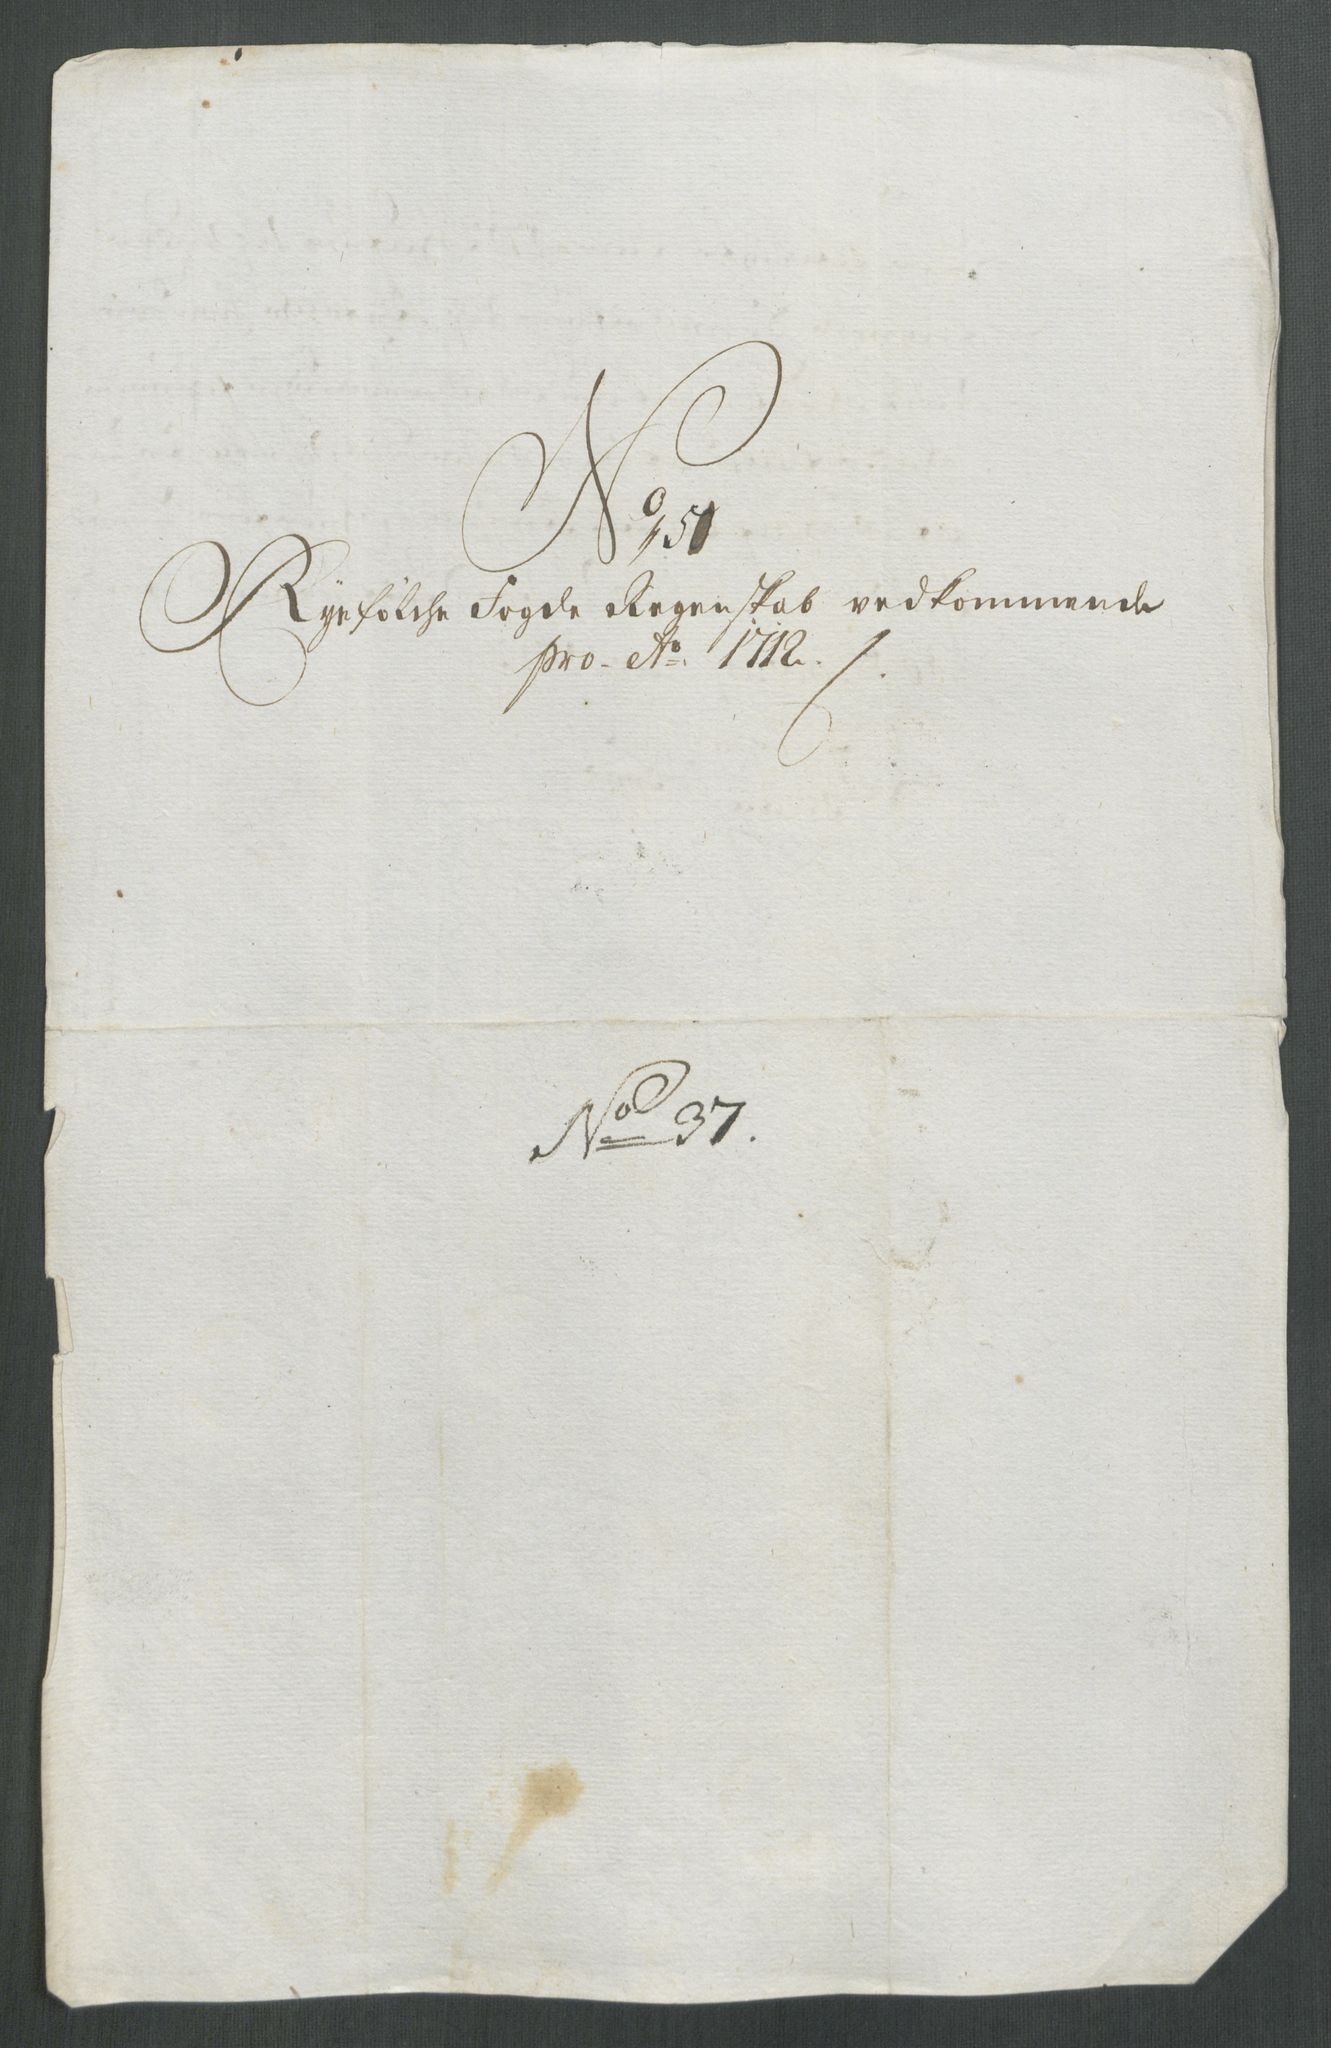 No 151
Ryefølche Fogde Regenskab vedkommende
pro Ao 1712.
No 37.